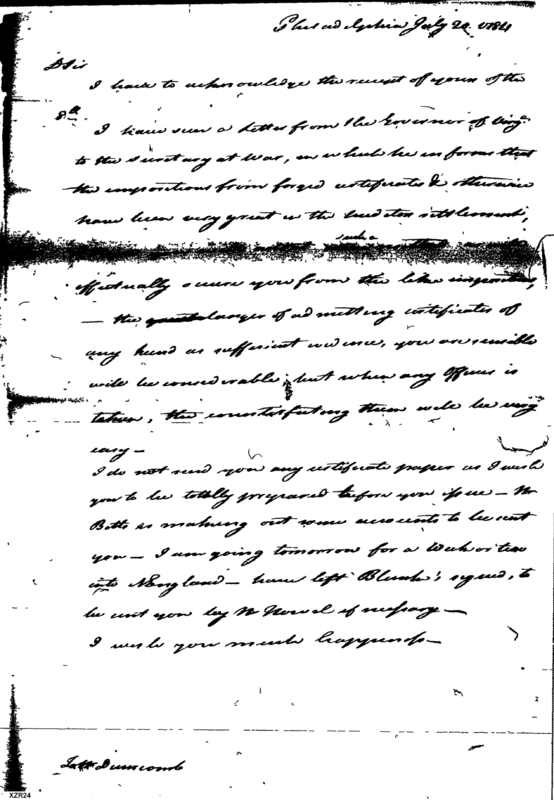 Philadelphia July 20 1784
D Sir
I have to acknowledge the receipt of yours of the
8th
I have seen a Letter from the Governor of Virga
to the Secretary at War, in which he informs that
the impositions from forged certificates & otherwise
have been very great in the settlement,
such a
effectually secure you from the like imposition,
— the danger of admitting certificates of
any hand as sufficient evidence, you are sensible
will be considerable; but when any Officer is
taken, the counterfeiting them will be very
easy —
I do not send you any certificate paper as I wish
you to be totally prepared before you issue — Mr
Betts is making out some accounts to be sent
you — I am going tomorrow for a Week or two
into NEngland — have left Blank's signed, to
be sent you by Mr Nowel if necessary —
I wish you much happiness —
2
Dunscomb
XZR24